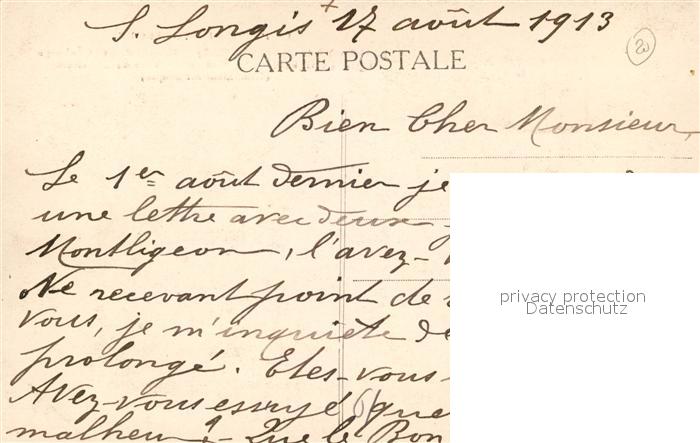 S. Longis 17 août 1913
20
CARTE POSTALE
Bien Cher Monsieur,
Le 1er août dernier je
une lettre avec deux
Montligeon, l'avez-
Ne recevant point de
vous, je m'inquiète de
prolongé. Etes-vous-
Avez-vous essuyé que
malheur?- Que le Bon
privacy protection
Datenschutz